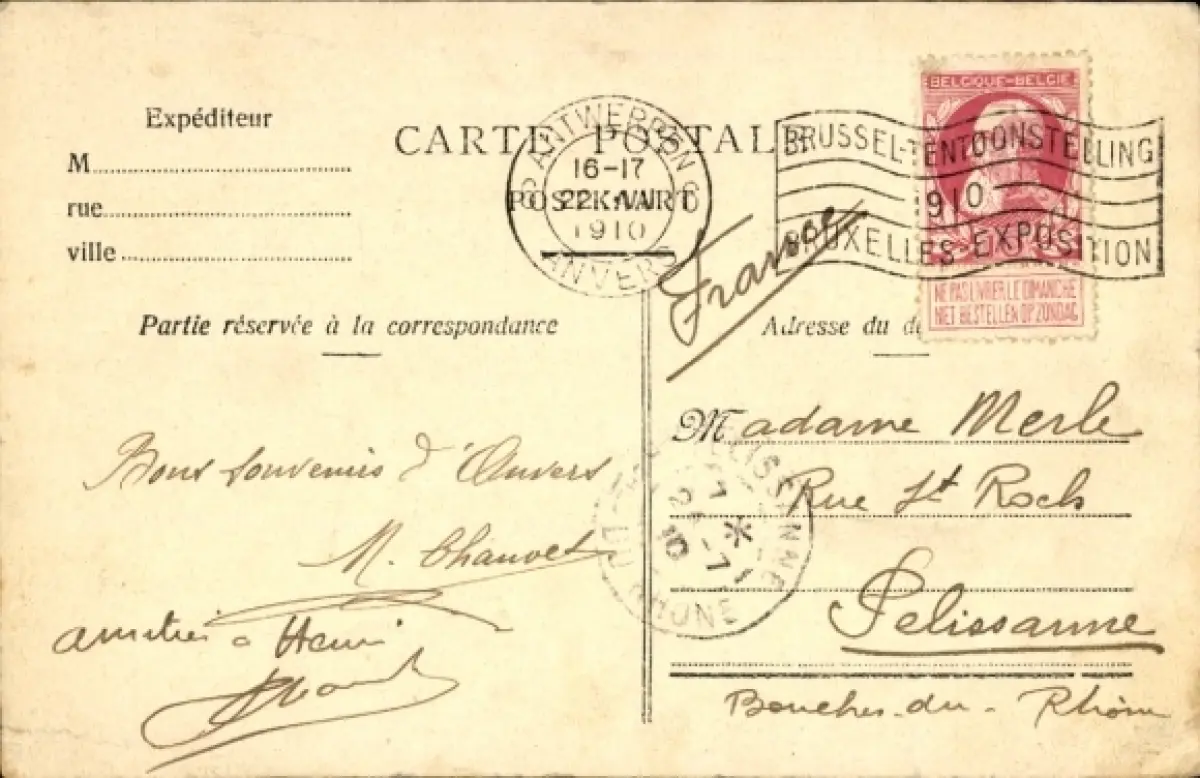 Expéditeur
M
rue
ville
CARTE POSTALE
POSTKAART
Partie réservée à la correspondance
Bons souvenirs d'Anvers
M. Chauvet
amitiés à Henri
ANTWERPEN 6
16-17
22
1910
ANVERS
BRUSSEL-TENTOONSTELLING
1910
BRUXELLES-EXPOSITION
BELGIQUE-BELGIE
NE PAS LIVRER LE DIMANCHE
NIET BESTELLEN OP ZONDAG
France
Adresse du de
Madame Merle
Rue St Roch
Pelissanne
Bouches-du-Rhône
PELISSANNE
10
DU RHONE